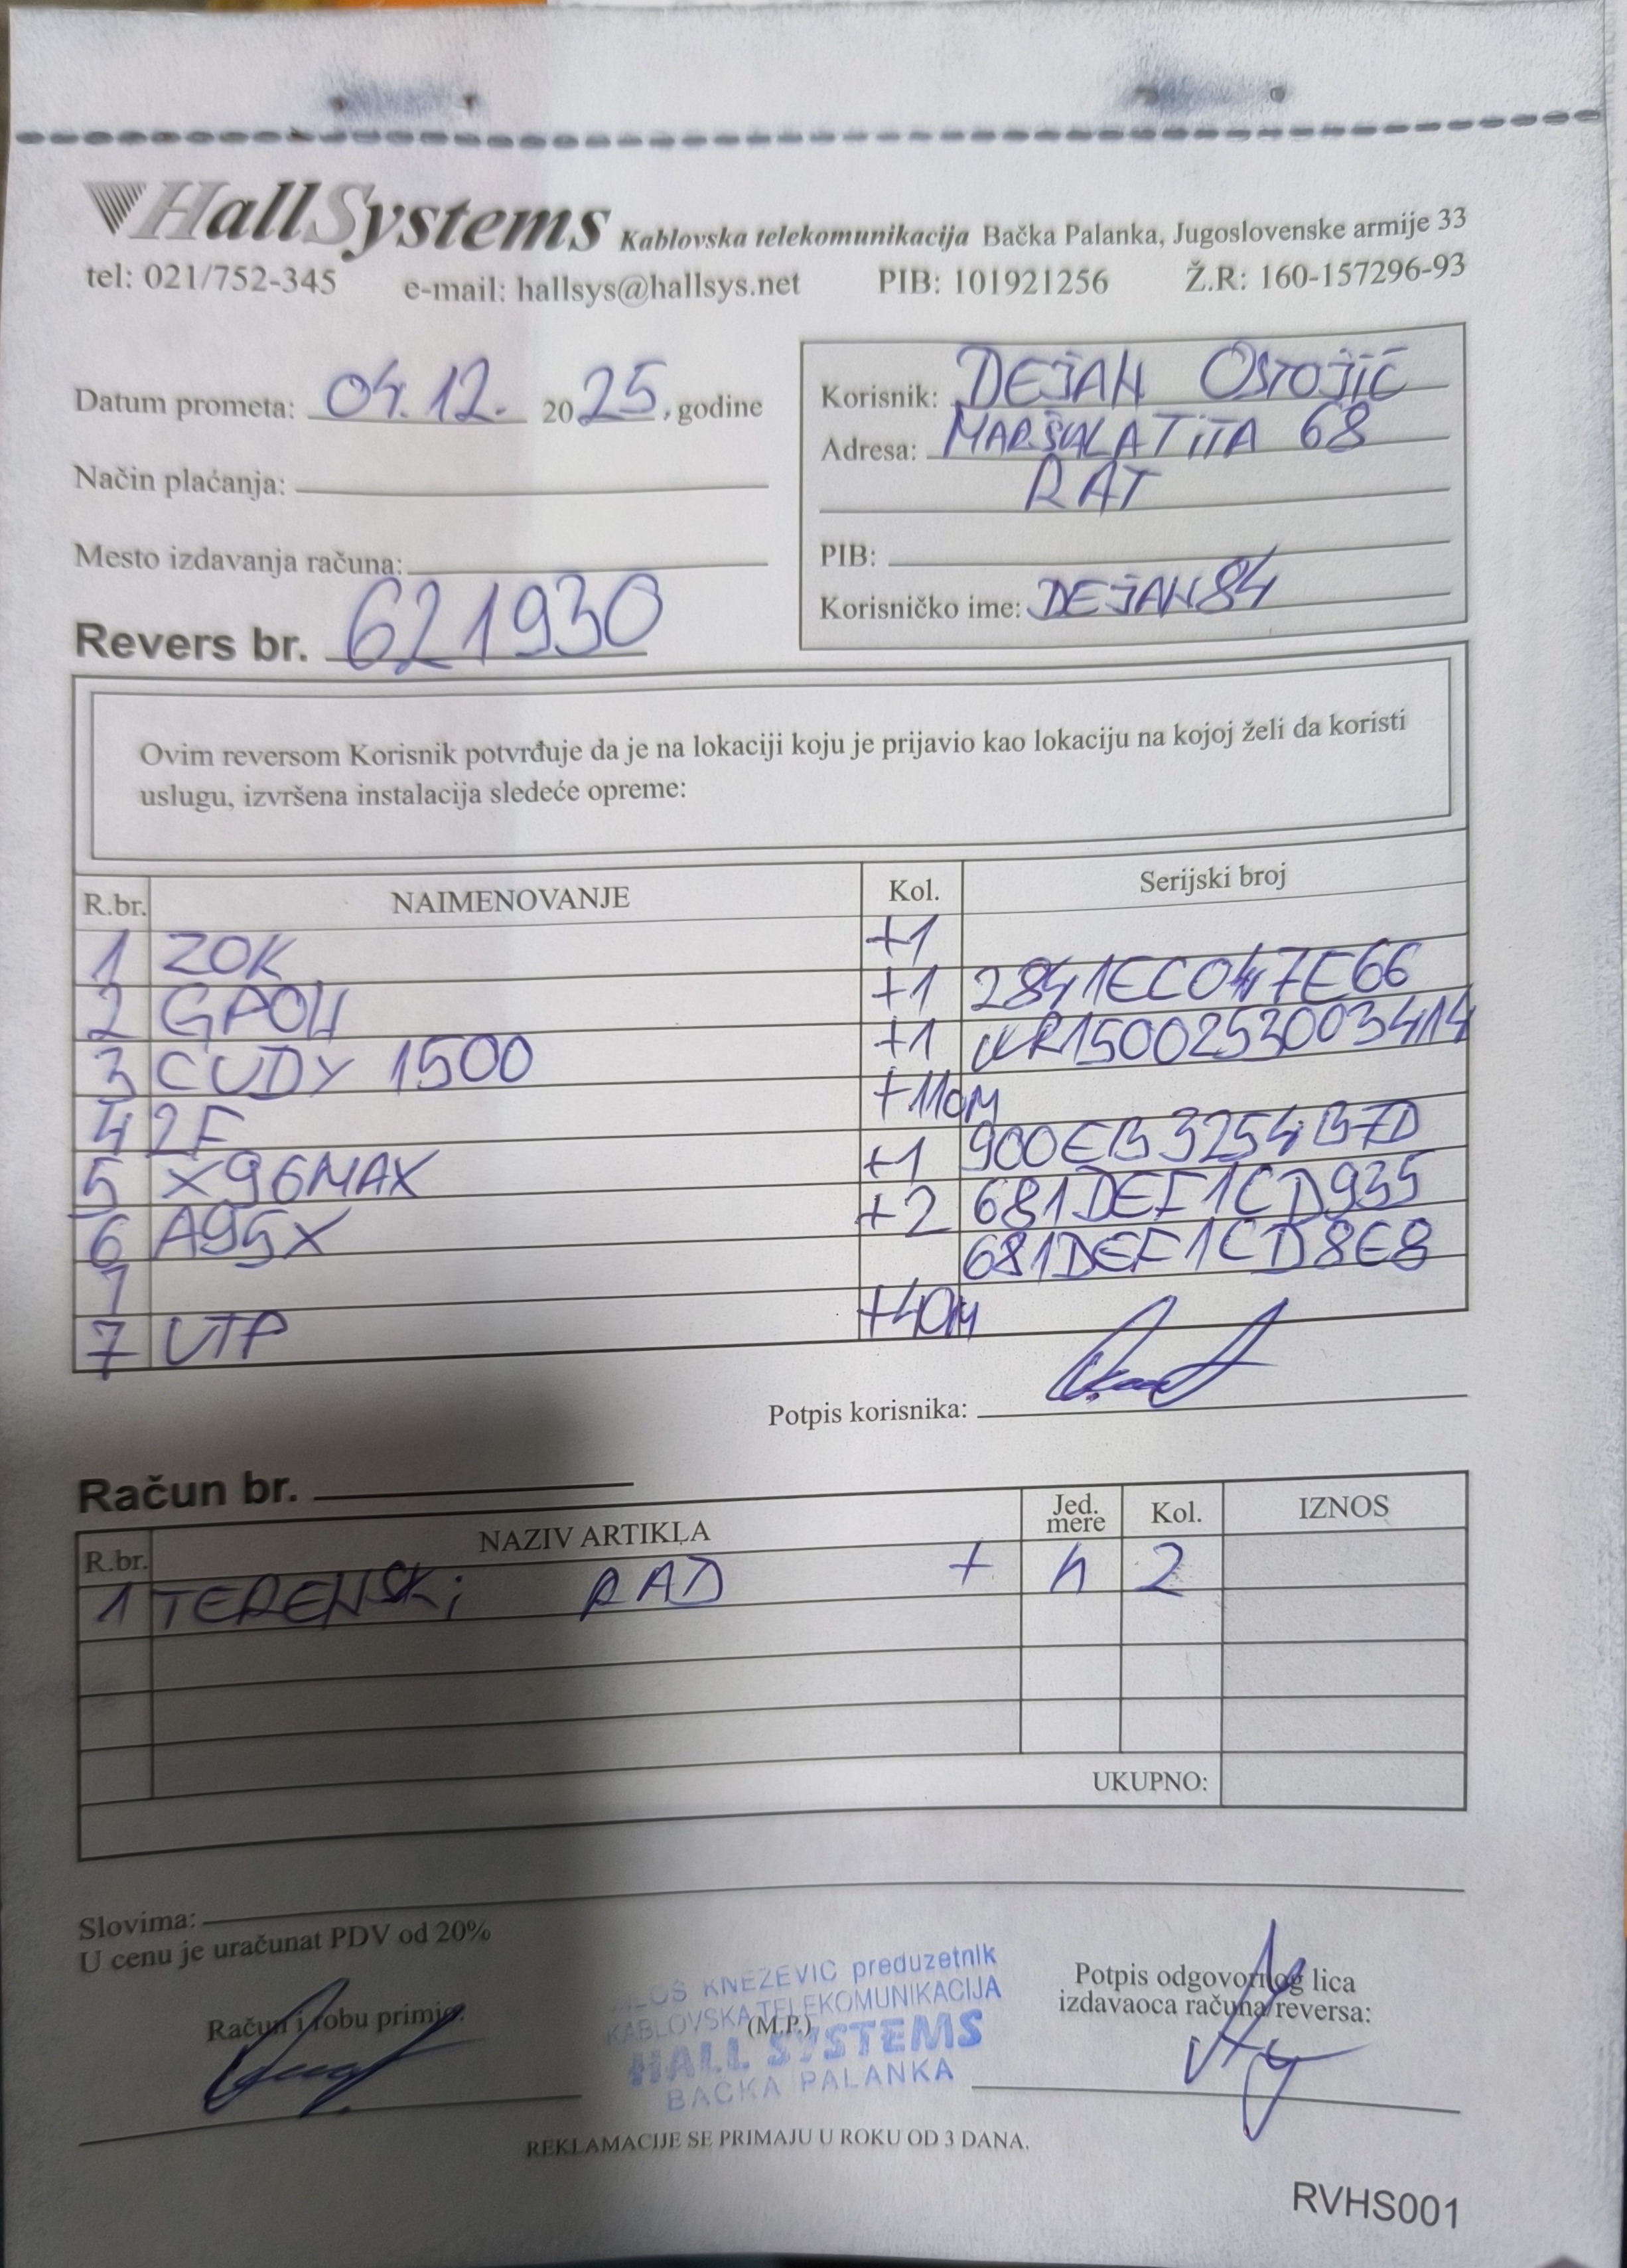 HallSystems Kablovska telekomunikacija Bačka Palanka, Jugoslovenske armije 33
tel: 021/752-345 e-mail: hallsys@hallsys.net PIB: 101921256 Ž.R: 160-157296-93
Datum prometa: 04.12. 2025, godine
Način plaćanja:
Mesto izdavanja računa:
Revers br. 621930
Korisnik: DEJAN OSTOJIĆ
Adresa: MARŠALA TITA 68
RAT
PIB:
Korisničko ime: DEJAN84
Ovim reversom Korisnik potvrđuje da je na lokaciji koju je prijavio kao lokaciju na kojoj želi da koristi
uslugu, izvršena instalacija sledeće opreme:
R.br. NAIMENOVANJE Kol. Serijski broj
1 ZOK +1
2 GPON +1 2841EC047E66
3 CUDY 1500 +1 WR1500253003414
4 2F +110M
5 X96MAX +1 900EB3254B7D
6 A95X +2 681DEF1CD935
681DEF1CD8E8
7 UTP +40M
Potpis korisnika:
Račun br.
R.br. NAZIV ARTIKLA Jed. mere Kol. IZNOS
1 TERENSKI RAD + h 2
UKUPNO:
Slovima:
U cenu je uračunat PDV od 20%
Račun i robu primio:
MILOŠ KNEŽEVIĆ preduzetnik
KABLOVSKA TELEKOMUNIKACIJA
(M.P.)
HALL SYSTEMS
BAČKA PALANKA
Potpis odgovornog lica
izdavaoca računa/reversa:
REKLAMACIJE SE PRIMAJU U ROKU OD 3 DANA.
RVHS001